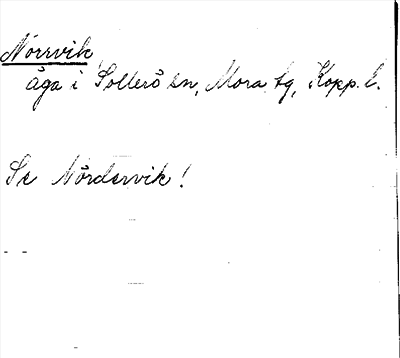 Norrvik
åga i Sollerö sn, Mora tg, Kopp. l.
Se Nårdervik!